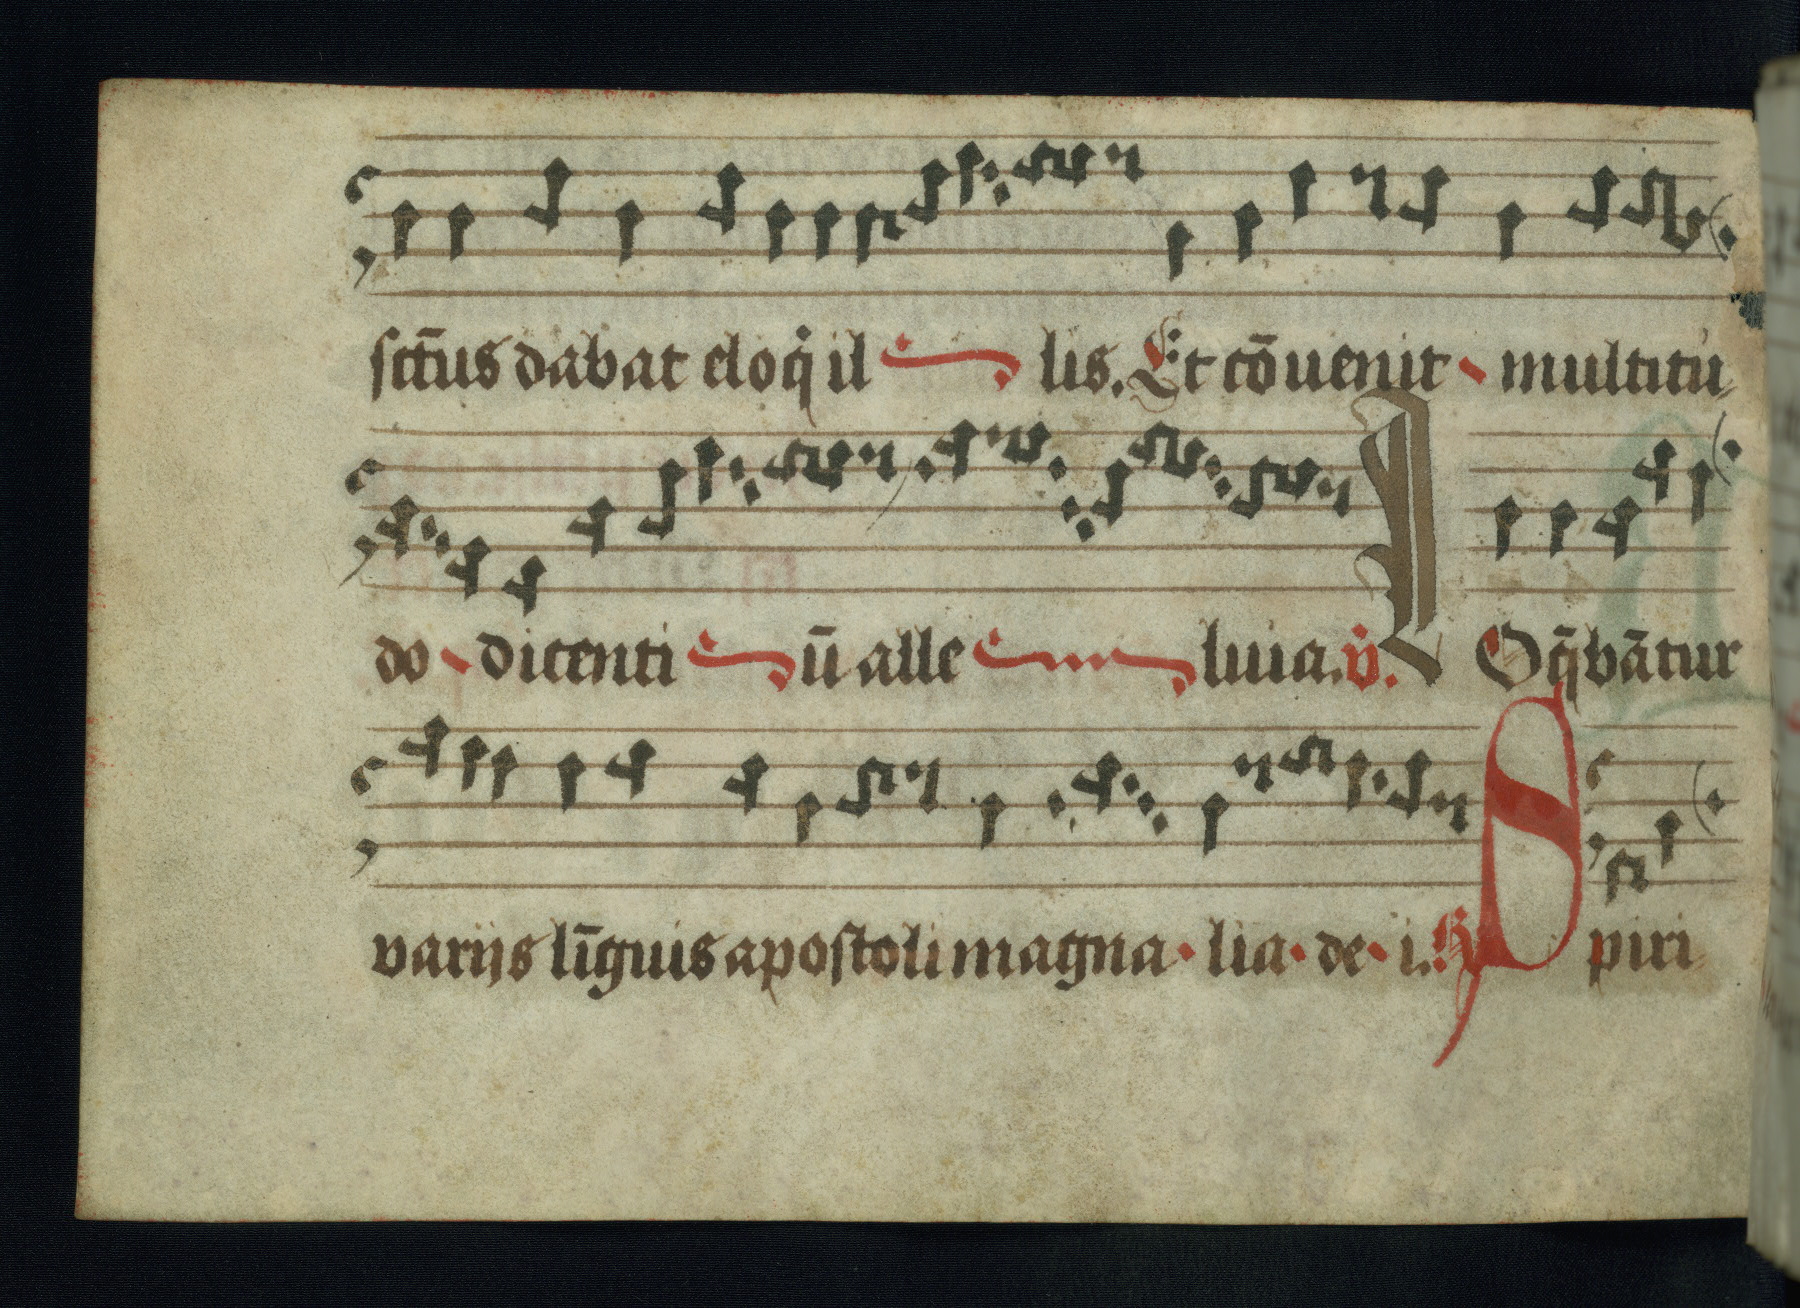 ſct̄us dabat eloq̇ il lis. Et cōuenit multitu⸗
do dicenti ū alle luia. v̇. L Oq̄bātur
varijs līguis apoſtoli magna lia de i. S piri⸗